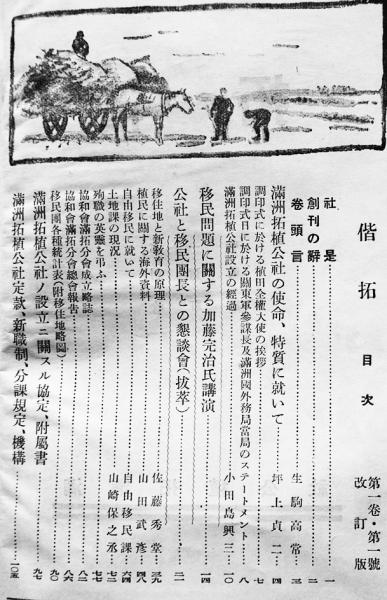 偕拓 目次 第一卷・第一號
改訂版
社是……一
創刊の辭……二
卷頭言……生駒高常…三
滿洲拓植公社の使命、特質に就いて……坪上貞二…四
調印式に於ける植田全權大使の挨拶……七
調印式日に於ける關東軍參謀長及滿洲國外務局當局のステートメント……八
滿洲拓植公社設立の經過……小田島興三…一〇
移民問題に關する加藤完治氏講演……一四
公社と移民團長との懇談會(拔萃)……二一
移住地と新教育の原理……佐藤秀堂…三九
植民に關する海外資料……山田武彥…四八
自由移民に就いて……自由移民課…六四
土地課の現況……山崎保之丞…七二
殉職の英靈を弔ふ……七七
協和會滿拓分會成立略誌……八二
協和會滿拓分會總會報告……八六
移民團各種統計表(附移住地略圖)……九〇
滿洲拓植公社ノ設立ニ關スル協定、附屬書……九七
滿洲拓植公社定款、新職制、分課規定、機構……一〇五